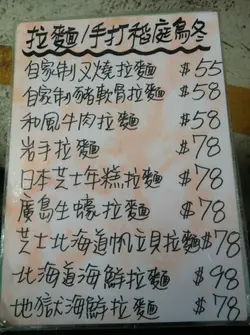 拉麵/手打稻庭烏冬
自家制叉燒拉麵 $55
自家制豬軟骨拉麵 $58
和風牛肉拉麵 $58
岩手拉麵 $78
日本芝士年糕拉麵 $78
廣島生蠔拉麵 $78
芝士北海道帆立貝拉麵 $78
北海道海鮮拉麵 $98
地獄海鮮拉麵 $78